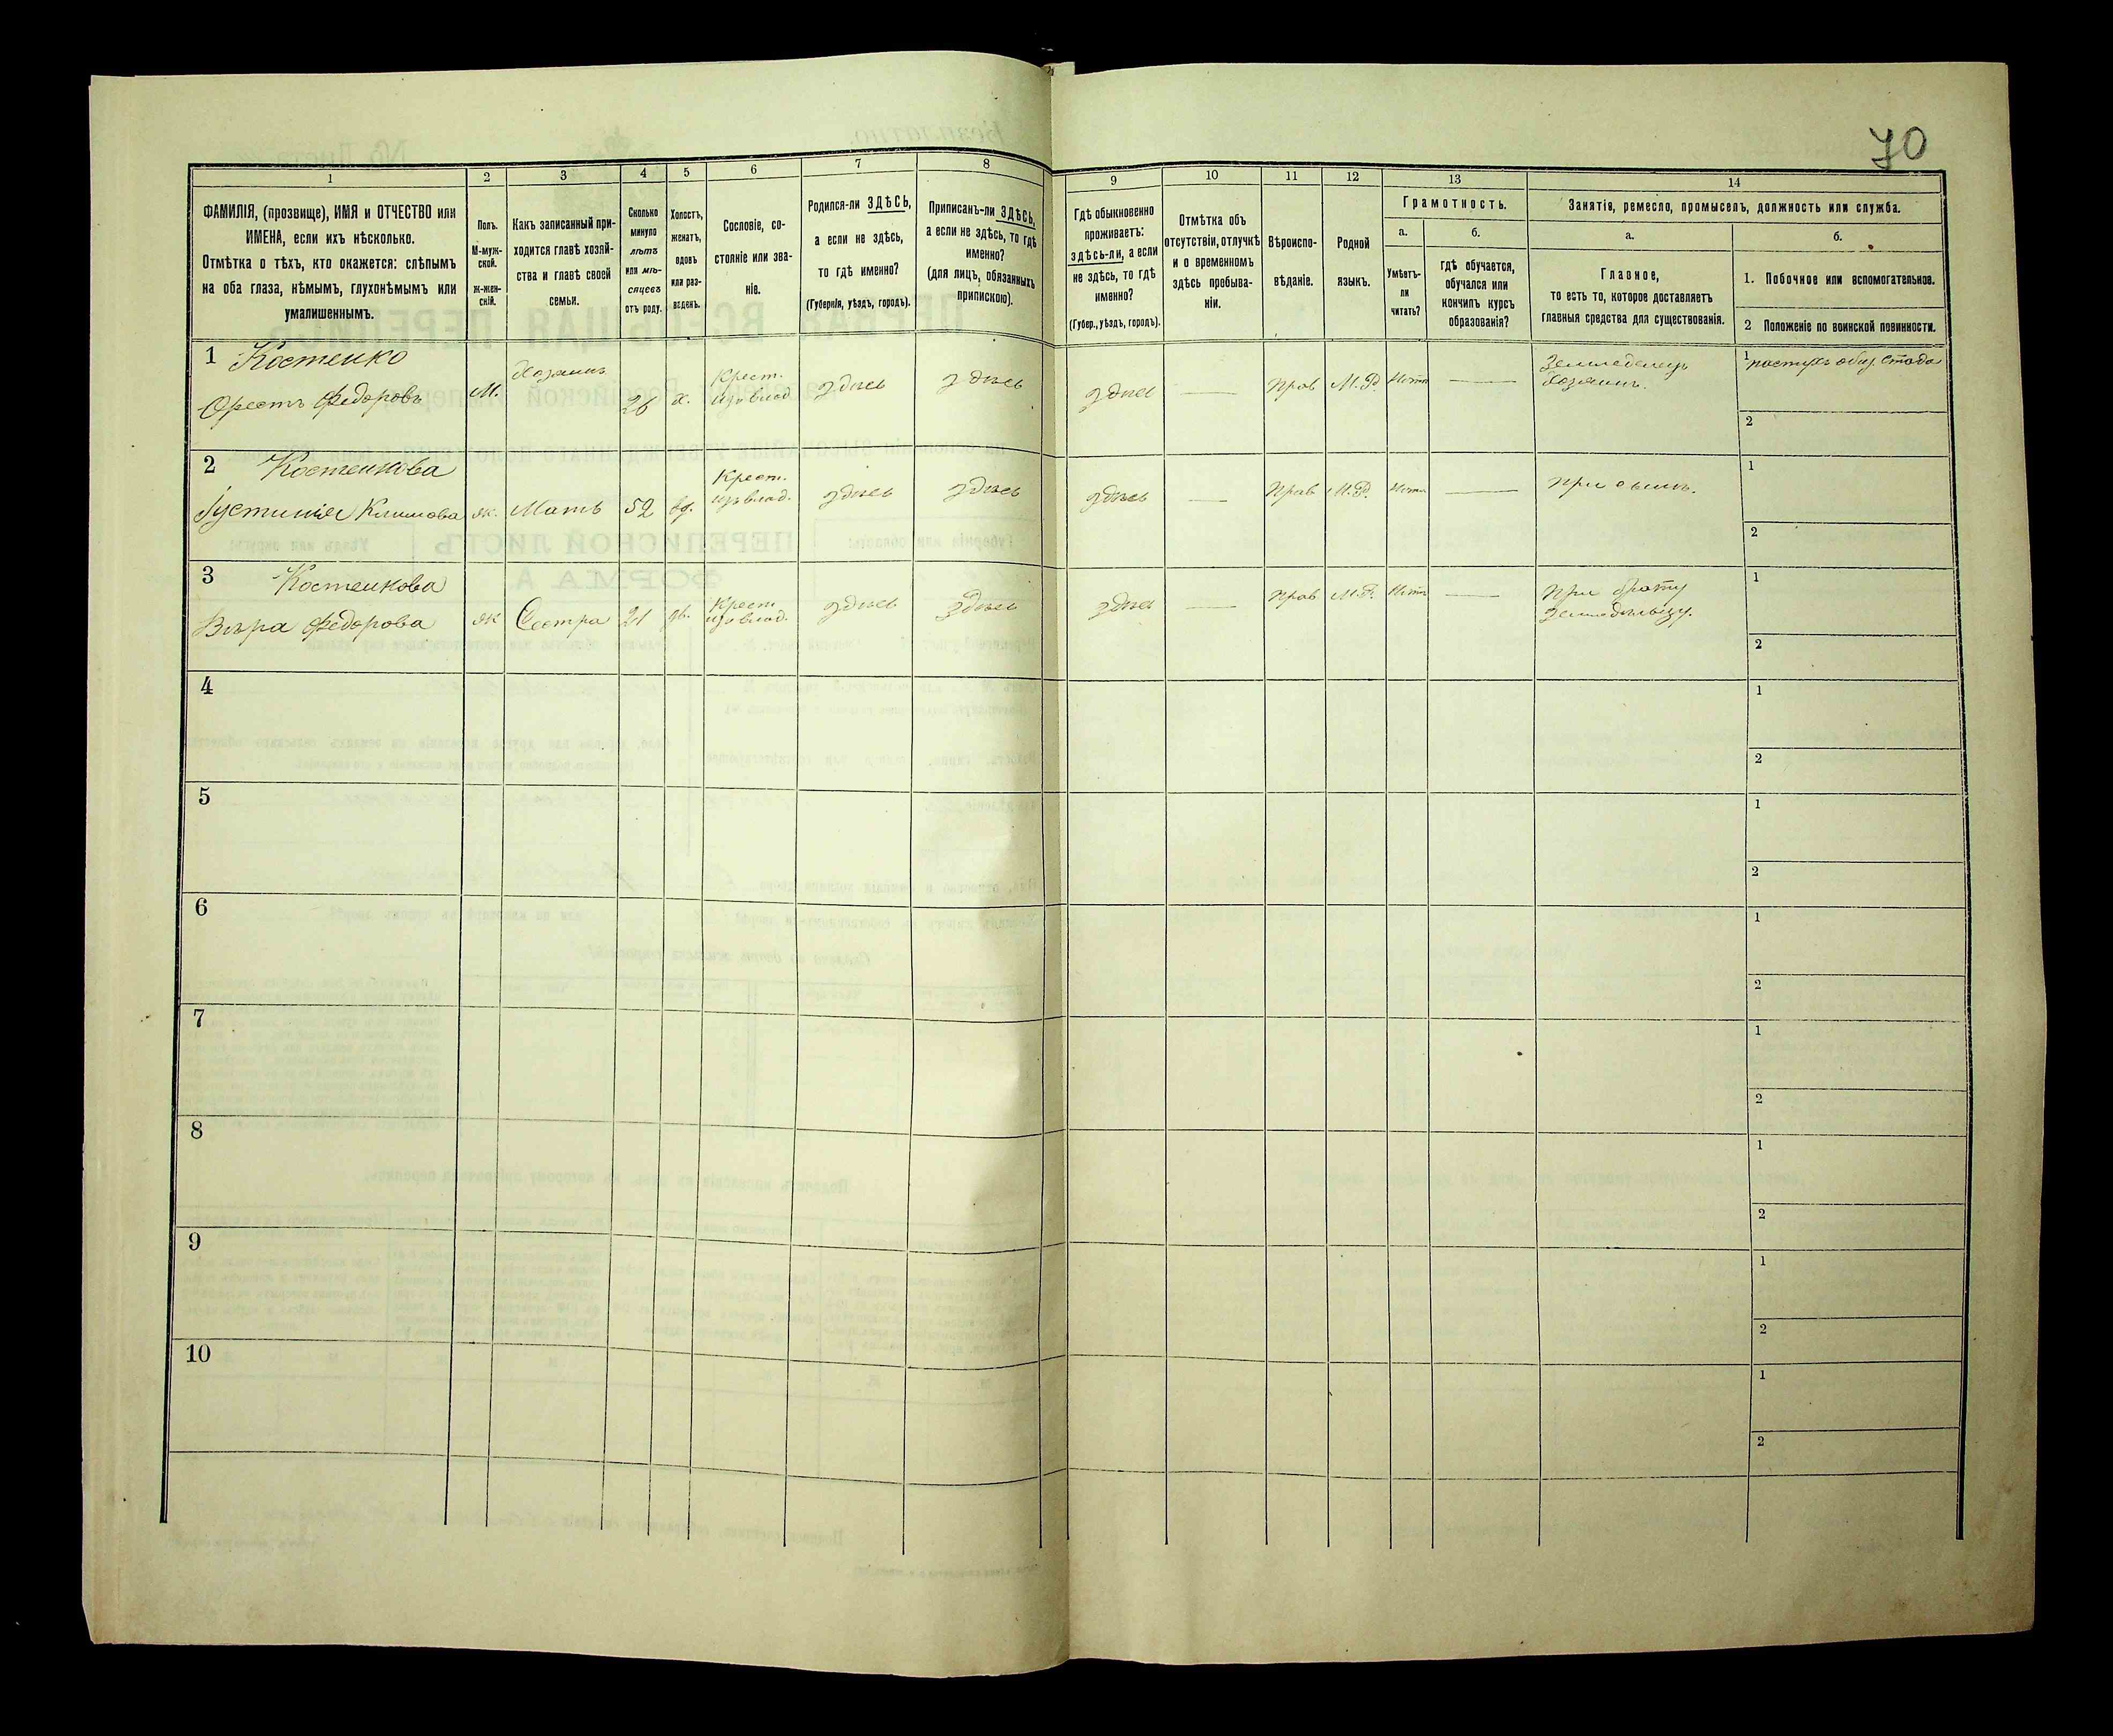 70
1
2
3
4
5
6
7
8
9
10
11
12
13
14
ФАМИЛІЯ, (прозвище), ИМЯ и ОТЧЕСТВО или
ИМЕНА, если ихъ нѣсколько.
Отмѣтка о тѣхъ, кто окажется: слѣпымъ
на оба глаза, нѣмымъ, глухонѣмымъ или
умалишеннымъ.
Полъ.
М-муж-
ской.
Ж-жен-
скій.
Какъ записанный при-
ходится главѣ хозяй-
ства и главѣ своей
семьи.
Сколько
минуло
лѣтъ
или мѣ-
сяцевъ
отъ роду.
Холостъ,
женатъ,
вдовъ
или раз-
веденъ.
Сословіе, со-
стояніе или зва-
ніе.
Родился-ли ЗДѢСЬ,
а если не здѣсь,
то гдѣ именно?
(Губернія, уѣздъ, городъ).
Приписанъ-ли ЗДѢСЬ,
а если не здѣсь, то гдѣ
именно?
(для лицъ, обязанныхъ
припискою).
Гдѣ обыкновенно
проживаетъ:
здѣсь-ли, а если
не здѣсь, то гдѣ
именно?
(Губер., уѣздъ, городъ).
Отмѣтка объ
отсутствіи, отлучкѣ
и о временномъ
здѣсь пребыва-
ніи.
Вѣроиспо-
вѣданіе.
Родной
языкъ.
Грамотность.
а.
Умѣетъ-
ли
читать?
б.
гдѣ обучается,
обучался или
кончилъ курсъ
образованія?
Занятія, ремесло, промыселъ, должность или служба.
а.
Главное,
то есть то, которое доставляетъ
главныя средства для существованія.
б.
1. Побочное или вспомогательное.
2 Положеніе по воинской повинности.
1 Костенко
Орестъ Федоровъ
М.
Хозяинъ
26
х.
Крест.
изъ влад.
здѣсь
здѣсь
здѣсь
—
Прав
М.Р.
Нѣтъ
—
Земледелецъ
Хозяинъ.
1 пастухъ общ. стада
2
2 Костенкова
Іустинія Климова
ж.
Мать
52
вд.
Крест.
изъ влад.
здѣсь
здѣсь
здѣсь
—
Прав
М.Р.
Нѣтъ
—
при сынѣ.
1
2
3 Костенкова
Вѣра Федорова
ж
Сестра
21
дѣ.
Крест
изъ влад.
здѣсь
здѣсь
здѣсь
—
Прав
М.Р.
Нѣтъ
—
При брату
земледѣльцу.
1
2
4
1
2
5
1
2
6
1
2
7
1
2
8
1
2
9
1
2
10
1
2